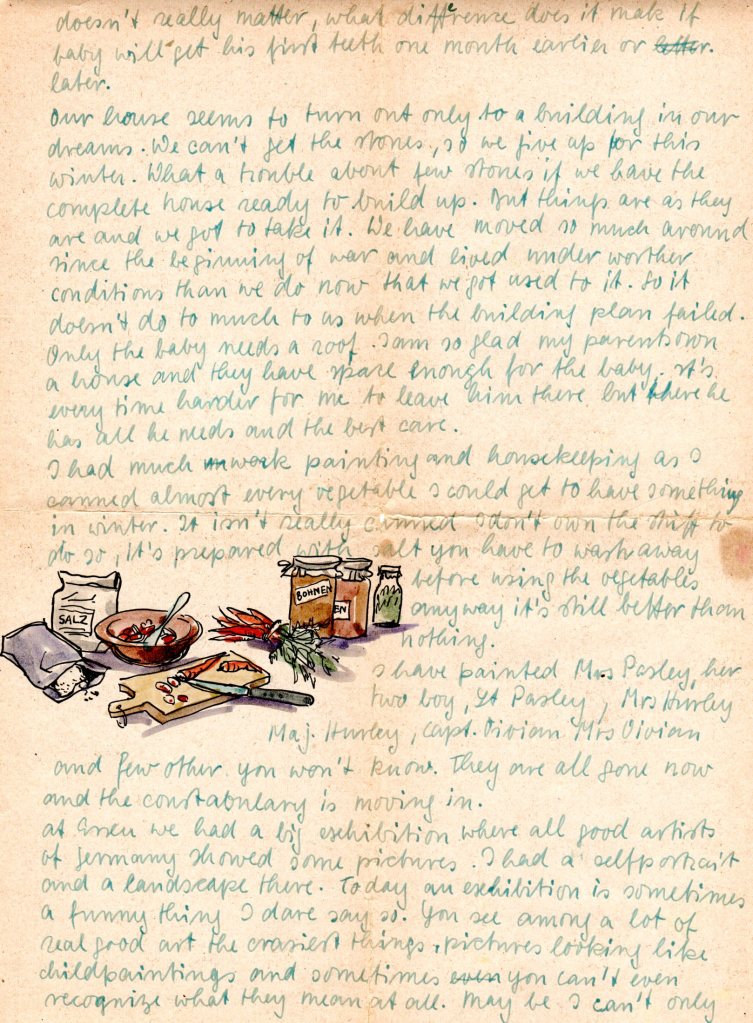 doesn't really matter, what difference does it make if
baby will get his first teeth one month earlier or letter.
later.
Our house seems to turn out only to a building in our
dreams. We can't get the stones, so we give up for this
winter. What a trouble about few stones if we have the
complete house ready to build up. But things are as they
are and we got to take it. We have moved so much around
since the beginning of war and lived under worther
conditions than we do now that we got used to it. So it
doesn't do to much to us when the building plan failed.
Only the baby needs a roof. I am so glad my parents own
a house and they have spare enough for the baby. It's
every time harder for me to leave him there but there he
has all he needs and the best care.
I had much work painting and housekeeping as I
canned almost every vegetable I could get to have something
in winter. It isn't really canned I don't own the stuff to
do so, it's prepared with salt you have to wash away
before using the vegetables
anyway it's still better than
nothing.
SALZ
BOHNEN
EN
I have painted Mrs Pasley, her
two boy, Lt Pasley, Mrs Hurley
Maj. Hurley, Capt. Vivian Mrs Vivian
and few other you won't know. They are all gone now
and the constabulary is moving in.
at Essen we had a big exhibition where all good artists
of Germany showed some pictures. I had a selfportrait
and a landscape there. Today an exhibition is sometimes
a funny thing I dare say so. You see among a lot of
real good art the crasiest things, pictures looking like
childpaintings and sometimes even you can't even
recognize what they mean at all. May be I can't only